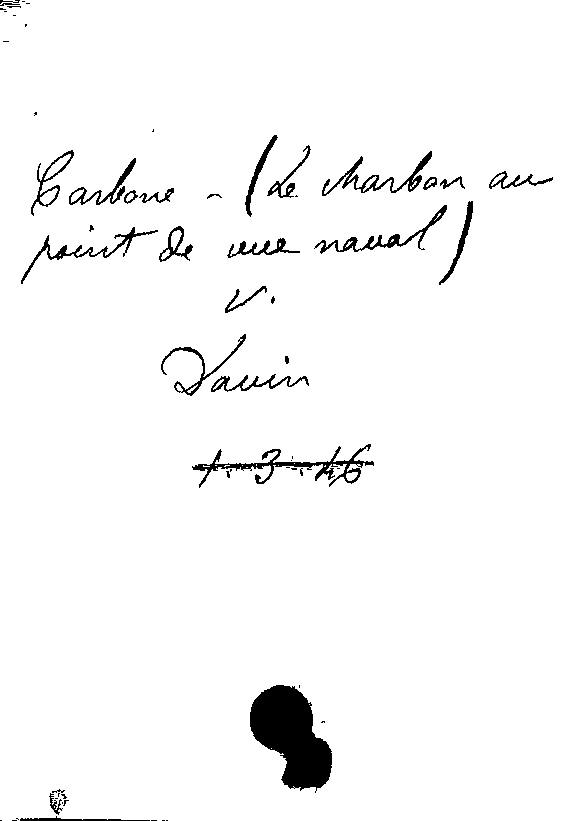 Carbone - (Le charbon au
point de vue naval)
v.
Davin
1.3.46